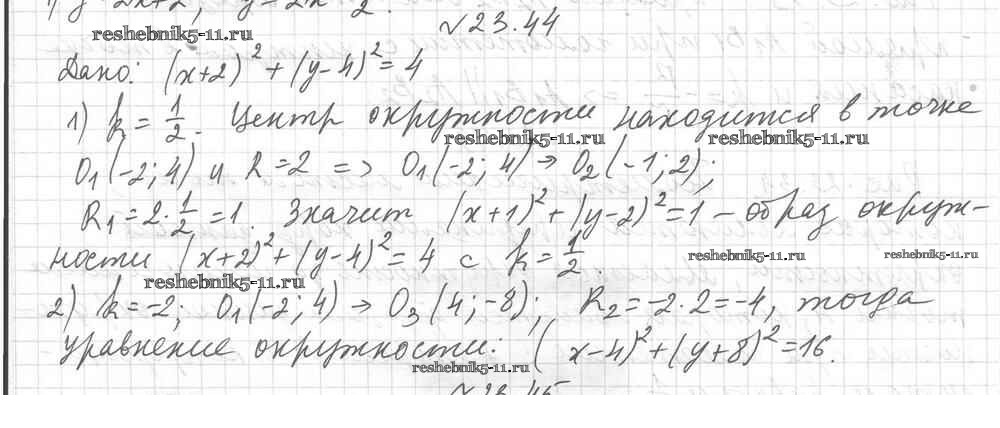 y=2x+2; y=2x-2.
№23.44
reshebnik5-11.ru
Дано: (x+2)²+(y-4)²=4
1) k=1/2. Центр окружности находится в точке
reshebnik5-11.ru reshebnik5-11.ru
O₁(-2;4) и R=2 => O₁(-2;4)→O₂(-1;2);
R₁=2·1/2=1. Значит (x+1)²+(y-2)²=1 - образ окруж-
ности (x+2)²+(y-4)²=4 с k=1/2.
reshebnik5-11.ru reshebnik5-11.ru
reshebnik5-11.ru
2) k=-2; O₁(-2;4)→O₃(4;-8); R₂=-2·2=-4, тогда
уравнение окружности: (x-4)²+(y+8)²=16.
reshebnik5-11.ru